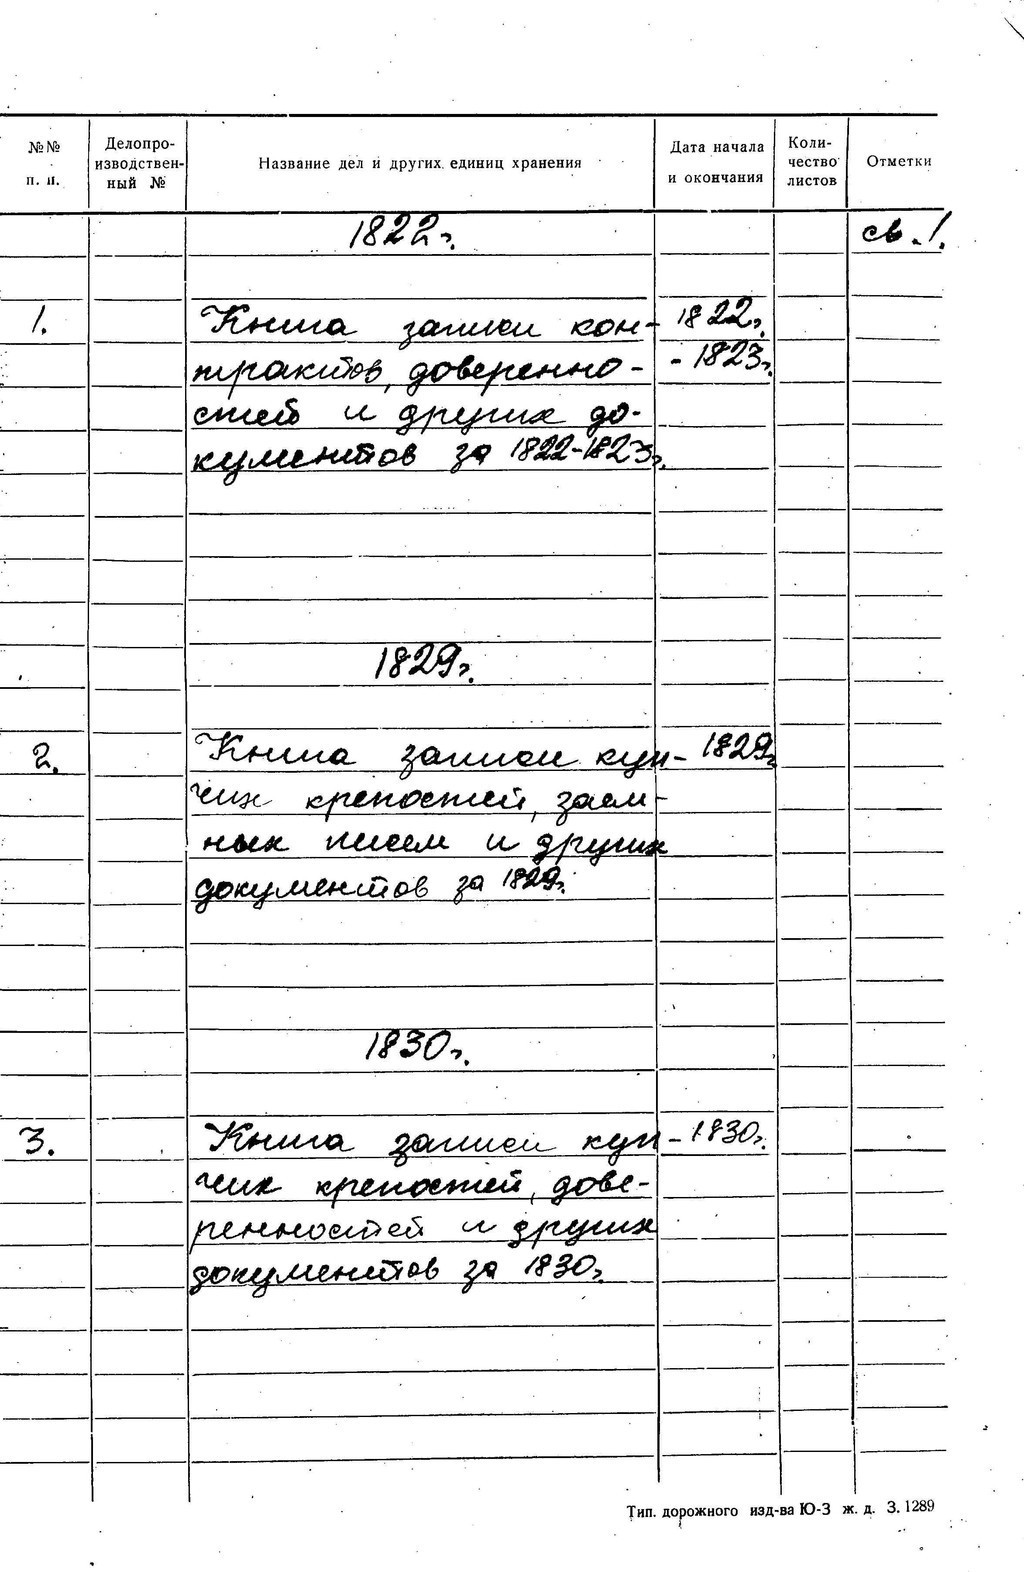 №№ п. п.
Делопро-
изводствен-
ный №
Название дел и других единиц хранения
Дата начала
и окончания
Коли-
чество
листов
Отметки
1822г.
св. 1.
1.
Книга записи кон-
трактов, доверенно-
стей и других до-
кументов за 1822-1823г.
1822г.
- 1823г.
1829г.
2.
Книга записи куп-
чих крепостей, заем-
ных писем и других
документов за 1829г.
1829г.
1830г.
3.
Книга записи куп-
чих крепостей, дове-
ренностей и других
документов за 1830г.
1830г.
Тип. дорожного изд-ва Ю-З ж. д. З. 1289